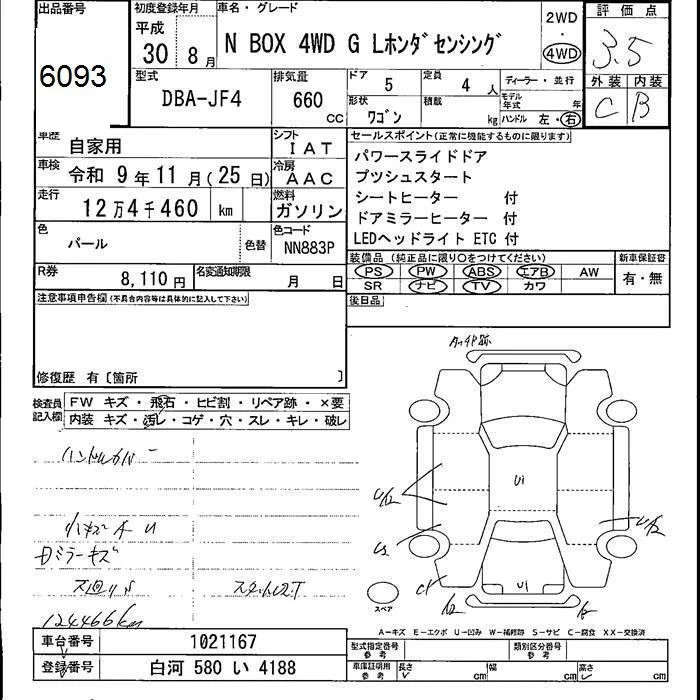 出品番号 初度登録年月 車名・グレード 2WD 評価点
平成 30年 8月 N BOX 4WD G Lホンダセンシング ・ 4WD 3.5
6093
型式 DBA-JF4 排気量 660 CC ドア 5 定員 4人 ディーラー・並行 外装 内装
形状 ワゴン 積載 kg モデル年式 年 ハンドル 左・右 C B
車歴 自家用 シフト IAT セールスポイント(正常に機能するものに限ります)
車検 令和 9年 11月(25日) 冷房 AAC パワースライドドア
プツシュスタート
走行 12万4千460 km 燃料 ガソリン シートヒーター 付
ドアミラーヒーター 付
色 パール 色替 色コード NN883P LEDヘッドライト ETC 付
装備品(純正品に限り○をつけてください) 新車保証書
R券 8,110円 名変通知期限 月 日 PS PW ABS エアB AW 有・無
SR ナビ TV カワ
注意事項申告欄(不具合内容等は具体的に記入して下さい) 後日品
修復歴 有〔箇所 〕
検査員記入欄 FW キズ・飛石・ヒビ割・リペア跡・×要
内装 キズ・汚レ・コゲ・穴・スレ・キレ・破レ
ハンドルカバー
小キズ A U
Dミラーキズ
124466km
U1
U1
スペア
A-キズ E-エクボ U-凹み W-補修跡 S-サビ C-腐食 XX-交換済
車台番号 1021167 型式指定番号 参考 類別区分番号 参考
登録番号 白河 580 い 4188 車庫証明用 参考 長さ cm 幅 cm 高さ cm